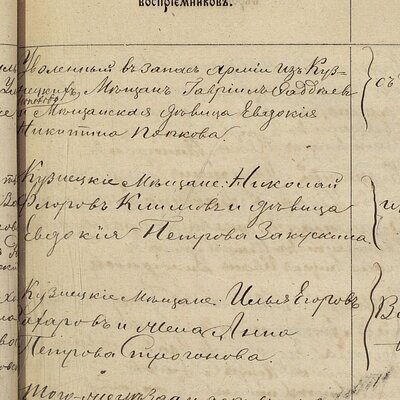 воспріемниковъ.
Уволенный въ запасъ Арміи изъ Куз-
нецкихъ Мѣщанъ Гавріилъ Фаддѣевъ
и Мѣщанская дѣвица Евдокія
Никитина Попкова.
Кузнецкіе Мѣщане: Николай
Флоровъ Климовъ и дѣвица
Евдокія Петрова Закускина.
Кузнецкіе Мѣщане: Илья Егоровъ
Захаровъ и жена Анна
Петрова Строгонова.